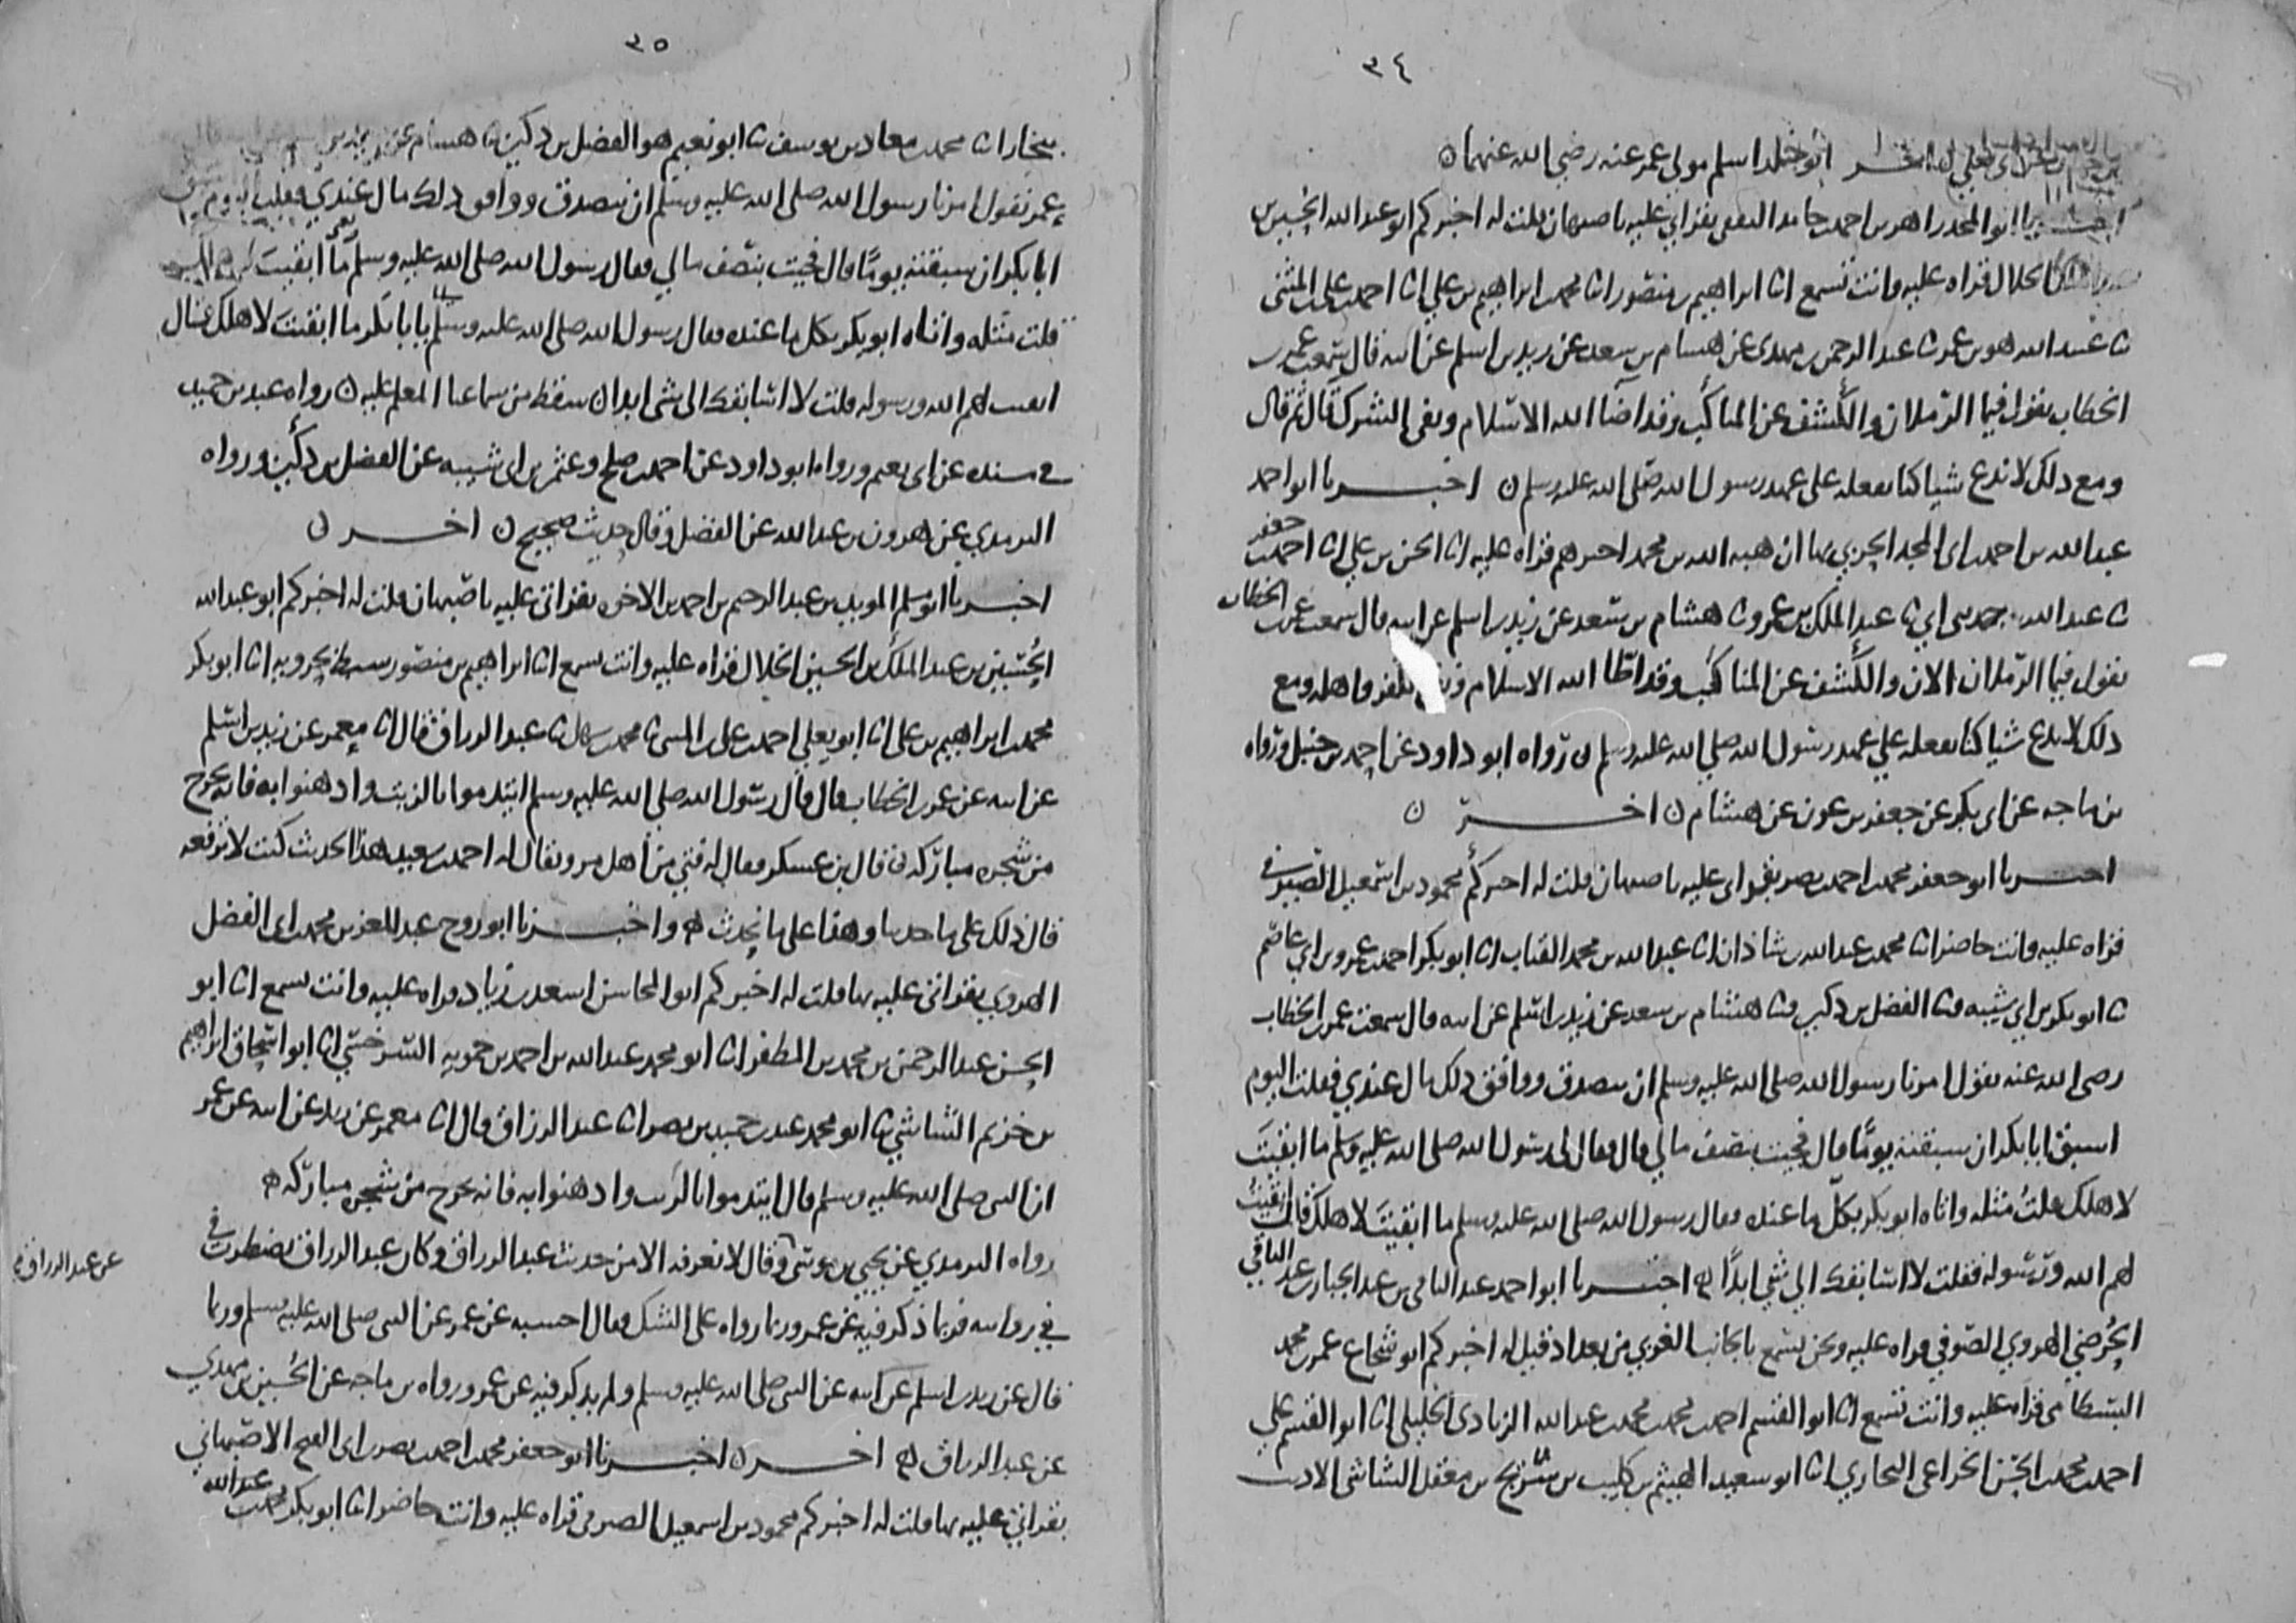 ٣٤
أبو خالد اسلم مولى عمر عنه رضي الله عنهما ن
زاهر بن احمد بن حامد الثقفي بقراءتي عليه باصبهان قلت له اخبركم ابو عبد الله الحسين بن
الخلال قراة عليه وانت تسمع انا ابراهيم بن منصور انا محمد بن ابراهيم بن علي انا احمد بن علي بن المثنى
ثنا عبد الله هو بن عمر ثنا عبد الرحمن بن مهدي عن هشام بن سعد عن زيد بن اسلم عن ابيه قال سمعت عمر بن
الخطاب يقول فيما الرملان والكشف عن المناكب وقد اضاء الله الاسلام ونفى الشرك قال ثم قال
ومع ذلك لا ندع شيا كنا نفعله على عهد رسول الله صلى الله عليه وسلم ن اخبرنا ابو احمد
عبد الله بن احمد بن ابي المجد الحربي بها ان هبة الله بن محمد اخبرهم قراة عليه انا الحسن بن علي انا احمد بن جعفر
ثنا عبد الله حدثني ابي ثنا عبد الملك بن عمرو ثنا هشام بن سعد عن زيد بن اسلم عن ابيه قال سمعت عمر بن الخطاب
يقول فيما الرملان الان والكشف عن المناكب وقد اطا الله الاسلام ونفى الكفر واهله ومع
ذلك لا ندع شيا كنا نفعله على عهد رسول الله صلى الله عليه وسلم ن رواه ابو داود عن احمد بن حنبل ورواه
بن ماجه عن ابي بكر عن جعفر بن عون عن هشام ن اخر ن
اخبرنا ابو جعفر محمد بن احمد بن نصر بقراءتي عليه باصبهان قلت له اخبركم محمود بن اسمعيل الصيرفي
قراه عليه وانت حاضر انا محمد بن عبد الله بن شاذان انا عبد الله بن محمد القباب انا ابو بكر احمد بن عمرو بن ابي عاصم
ثنا ابو بكر بن ابي شيبه ثنا الفضل بن دكين ثنا هشام بن سعد عن زيد بن اسلم عن ابيه قال سمعت عمر بن الخطاب
رضي الله عنه يقول امرنا رسول الله صلى الله عليه وسلم ان نتصدق ووافق ذلك مال عندي فقلت اليوم
اسبق ابا بكر ان سبقته يوما قال فجيت بنصف مالي قال فقال لي رسول الله صلى الله عليه وسلم ما ابقيت
لاهلك قلت مثله واتاه ابو بكر بكل ما عنده فقال رسول الله صلى الله عليه وسلم ما ابقيت لاهلك قال ابقيت
لهم الله ورسوله فقلت لا اسابقك الى شي ابدا ه اخبرنا ابو احمد عبد الباقي بن عبد الجبار بن عبد الباقي
الحرضي الهروي الصوفي قراه عليه ونحن نسمع بالجانب الغربي من بغداد قيل له اخبركم ابو شجاع عمر بن محمد
البسطامي قراه عليه وانت تسمع انا ابو القسم احمد بن محمد بن محمد بن عبد الله الزيادي الخليلي انا ابو القسم علي بن
احمد بن محمد بن الحسن الخزاعي البخاري انا ابو سعيد الهيثم بن كليب بن شريح بن معقل الشاشي الاديب
٣٥
بخارا ثنا محمد بن معاذ بن يوسف ثنا ابو نعيم هو الفضل بن دكين ثنا هشام عن زيد بن
عمر يقول امرنا رسول الله صلى الله عليه وسلم ان نتصدق ووافق ذلك مال عندي فقلت اليوم
ابا بكر ان سبقته يوما قال فجيت بنصف مالي فقال رسول الله صلى الله عليه وسلم ما ابقيت
قلت مثله واتاه ابو بكر بكل ما عنده فقال رسول الله صلى الله عليه وسلم يا ابا بكر ما ابقيت لاهلك فقال
ابقيت لهم الله ورسوله قلت لا اسابقك الى شي ابدا ن سقط من سماعنا المعلم عليه ن رواه عبد بن حميد
في مسنده عن ابي نعيم ورواه ابو داود عن احمد بن صالح وعثمن بن ابي شيبه عن الفضل بن دكين ورواه
الترمذي عن هرون بن عبد الله عن الفضل وقال حديث صحيح ن اخر ن
اخبرنا ابو مسلم المويد بن عبد الرحيم بن احمد بن الاخوه بقراتي عليه باصبهان قلت له اخبركم ابو عبد الله
الحسين بن عبد الملك بن الحسين الخلال قراه عليه وانت تسمع انا ابراهيم بن منصور سبط بحرويه انا ابو بكر
محمد بن ابراهيم بن علي انا ابو يعلى احمد بن علي بن المثنى ثنا محمد بن سهل ثنا عبد الرزاق قال انا معمر عن زيد بن اسلم
عن ابيه عن عمر بن الخطاب قال قال رسول الله صلى الله عليه وسلم ايتدموا بالزيت وادهنوا به فانه يخرج
من شجره مباركه ن قال بن عسكر فقال له فتى من اهل مرو يقال له احمد بن سعيد هذا الحديث كنت لا ترفعه
قال ذلك على ما حدثنا وهذا على ما نحدث ه واخبرنا ابو روح عبد المعز بن محمد بن ابي الفضل
الهروي بقراتي عليه بها قلت له اخبركم ابو المحاسن اسعد بن زياد قراه عليه وانت تسمع انا ابو
الحسن عبد الرحمن بن محمد بن المظفر انا ابو محمد عبد الله بن احمد بن حمويه السرخسي انا ابو اسحاق ابراهيم
بن خزيم الشاشي ثنا ابو محمد عبد بن حميد بن نصر انا عبد الرزاق قال انا معمر عن زيد عن ابيه عن عمر
ان النبي صلى الله عليه وسلم قال ايتدموا بالزيت وادهنوا به فانه يخرج من شجره مباركه ه
رواه الترمذي عن يحيى بن موسى وقال لا نعرفه الا من حديث عبد الرزاق وكان عبد الرزاق يضطرب في
عن عبد الرزاق
في روايته فربما ذكر فيه عن عمر وربما رواه على الشك فقال احسبه عن عمر عن النبي صلى الله عليه وسلم وربما
قال عن زيد بن اسلم عن ابيه عن النبي صلى الله عليه وسلم ولم يذكر فيه عن عمر ورواه بن ماجه عن الحسين بن مهدي
عن عبد الرزاق ه اخر ن اخبرنا ابو جعفر محمد بن احمد بن نصر بن ابي الفتح الاصبهاني
بقراتي عليه بها قلت له اخبركم محمود بن اسمعيل الصيرفي قراه عليه وانت حاضر انا ابو بكر محمد بن عبد الله